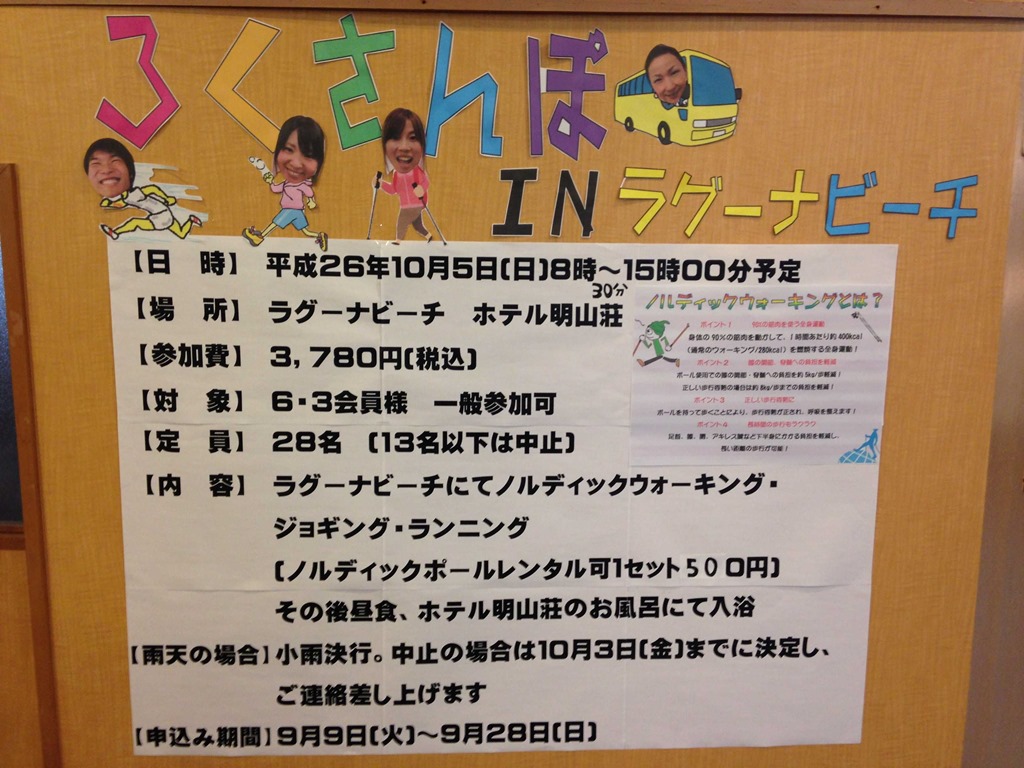 ろくさんぽ
IN ラグーナビーチ
【日 時】 平成26年10月5日(日)8時～15時00分予定
30分
【場 所】 ラグーナビーチ ホテル明山荘
【参加費】 3,780円(税込)
【対 象】 6・3会員様 一般参加可
【定 員】 28名 (13名以下は中止)
【内 容】 ラグーナビーチにてノルディックウォーキング・
ジョギング・ランニング
(ノルディックポールレンタル可1セット500円)
その後昼食、ホテル明山荘のお風呂にて入浴
【雨天の場合】小雨決行。中止の場合は10月3日(金)までに決定し、
ご連絡差し上げます
【申込み期間】9月9日(火)～9月28日(日)
ノルディックウォーキングとは?
ポイント1 90%の筋肉を使う全身運動
身体の90%の筋肉を動かして、1時間あたり約400kcal
(通常のウォーキング/280kcal)を燃焼する全身運動!
ポイント2 膝の関節・脊髄への負担を軽減
ポール使用での膝の関節・脊髄への負担を約5kg/歩軽減!
正しい歩行姿勢の場合は約8kg/歩までの負担を軽減!
ポイント3 正しい歩行姿勢に
ポールを持って歩くことにより、歩行姿勢が正され、呼吸を整えます!
ポイント4 長時間の歩行もラクラク
足首、膝、腰、アキレス腱など下半身にかかる負担を軽減し、
長い距離の歩行が可能!